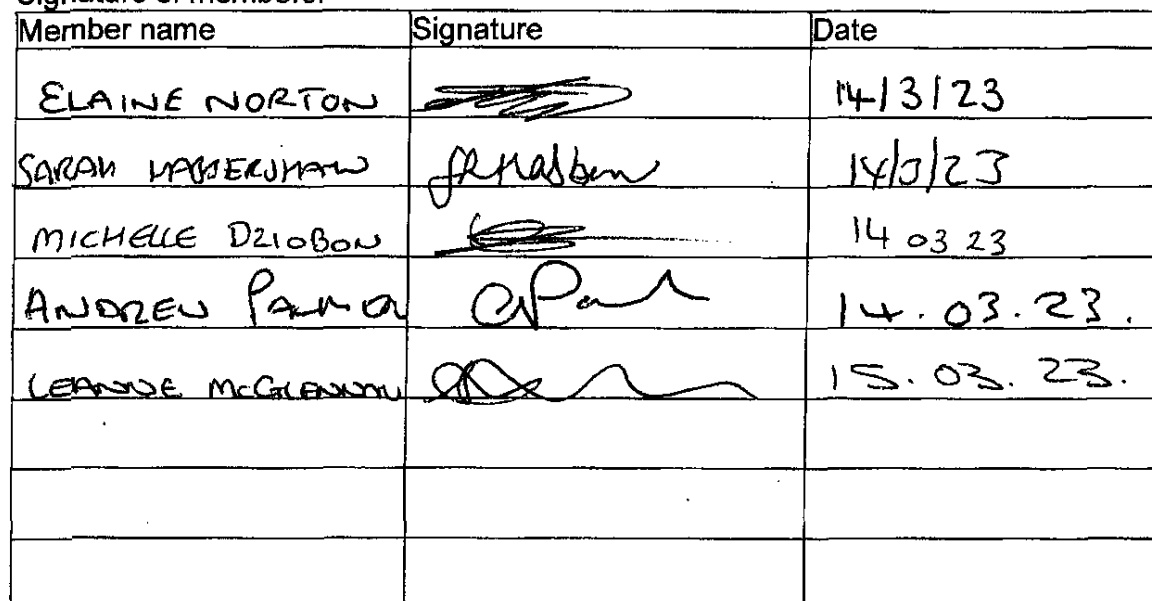 Signature of members:
Member name Signature Date
ELAINE NORTON 14/3/23
SARAH 14/3/23
MICHELLE DZIOBON 14 03 23
ANDREW PALMER 14.03.23.
LEANNE McGLENNON 15.03.23.